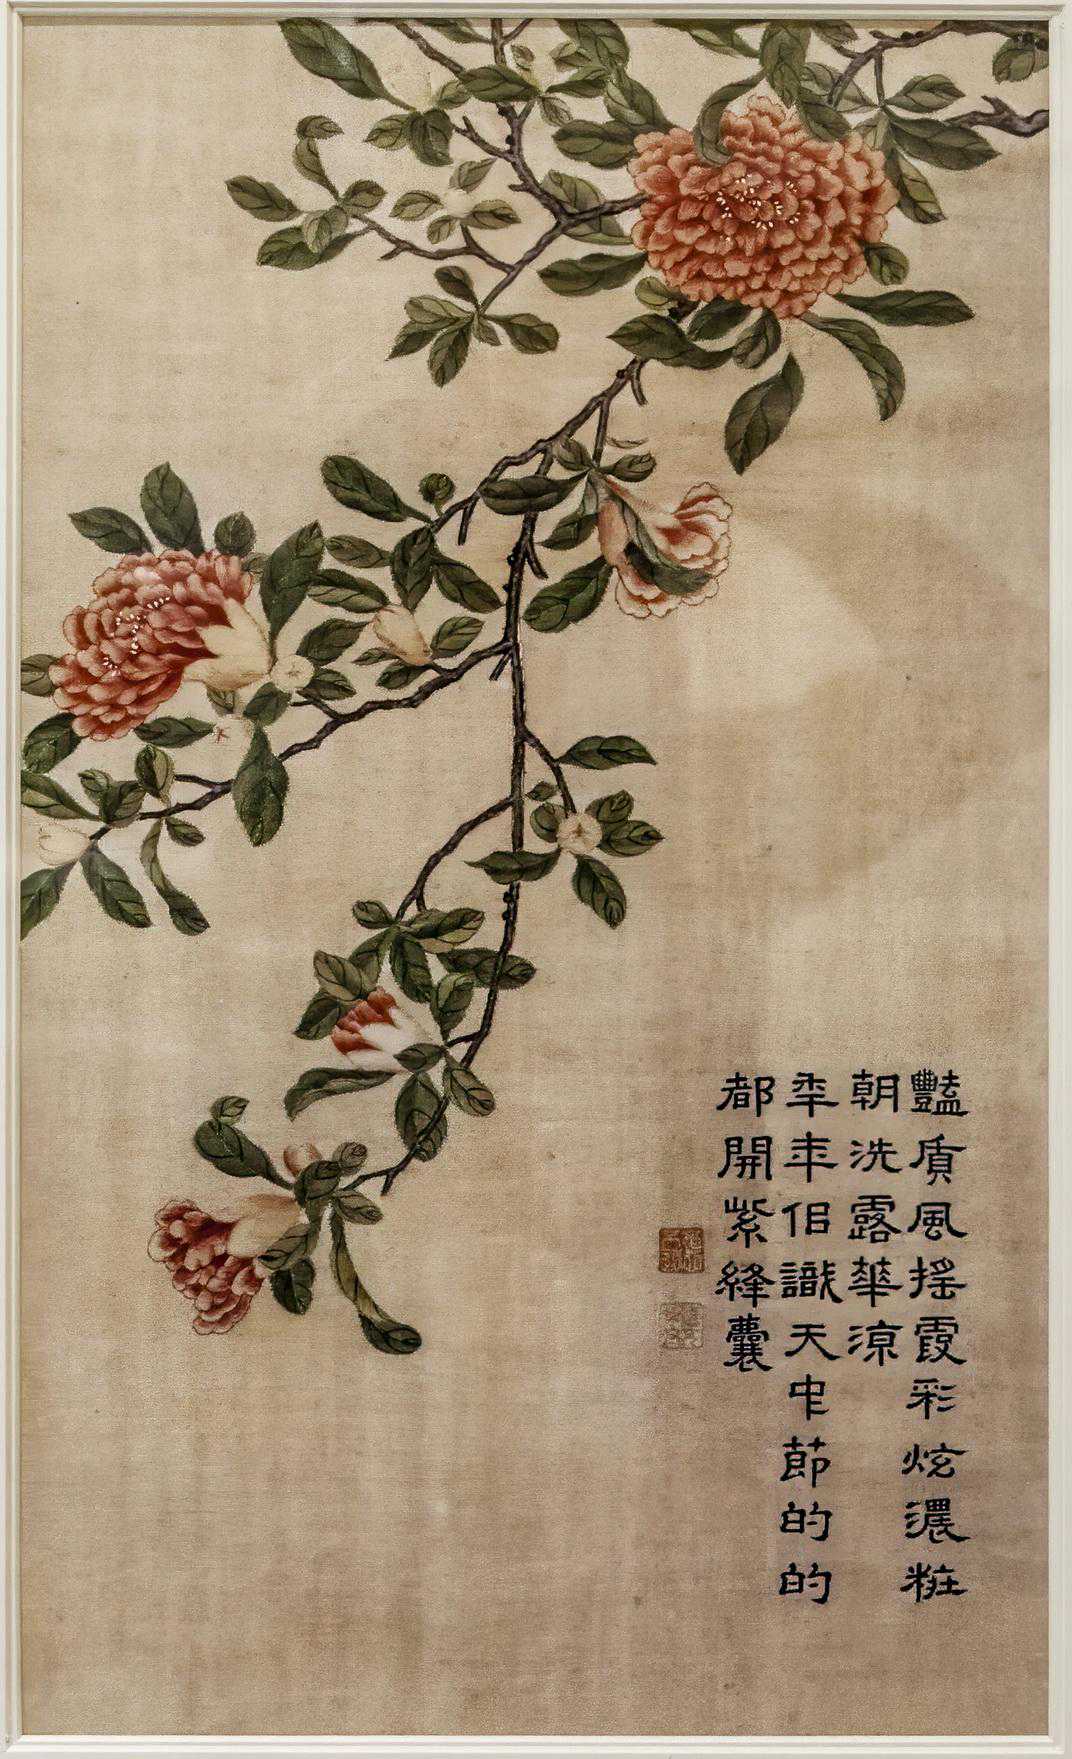 豔質風摇霞彩炫濃粧
朝洗露華涼
年年佀識天中節的的
都開紫絳囊